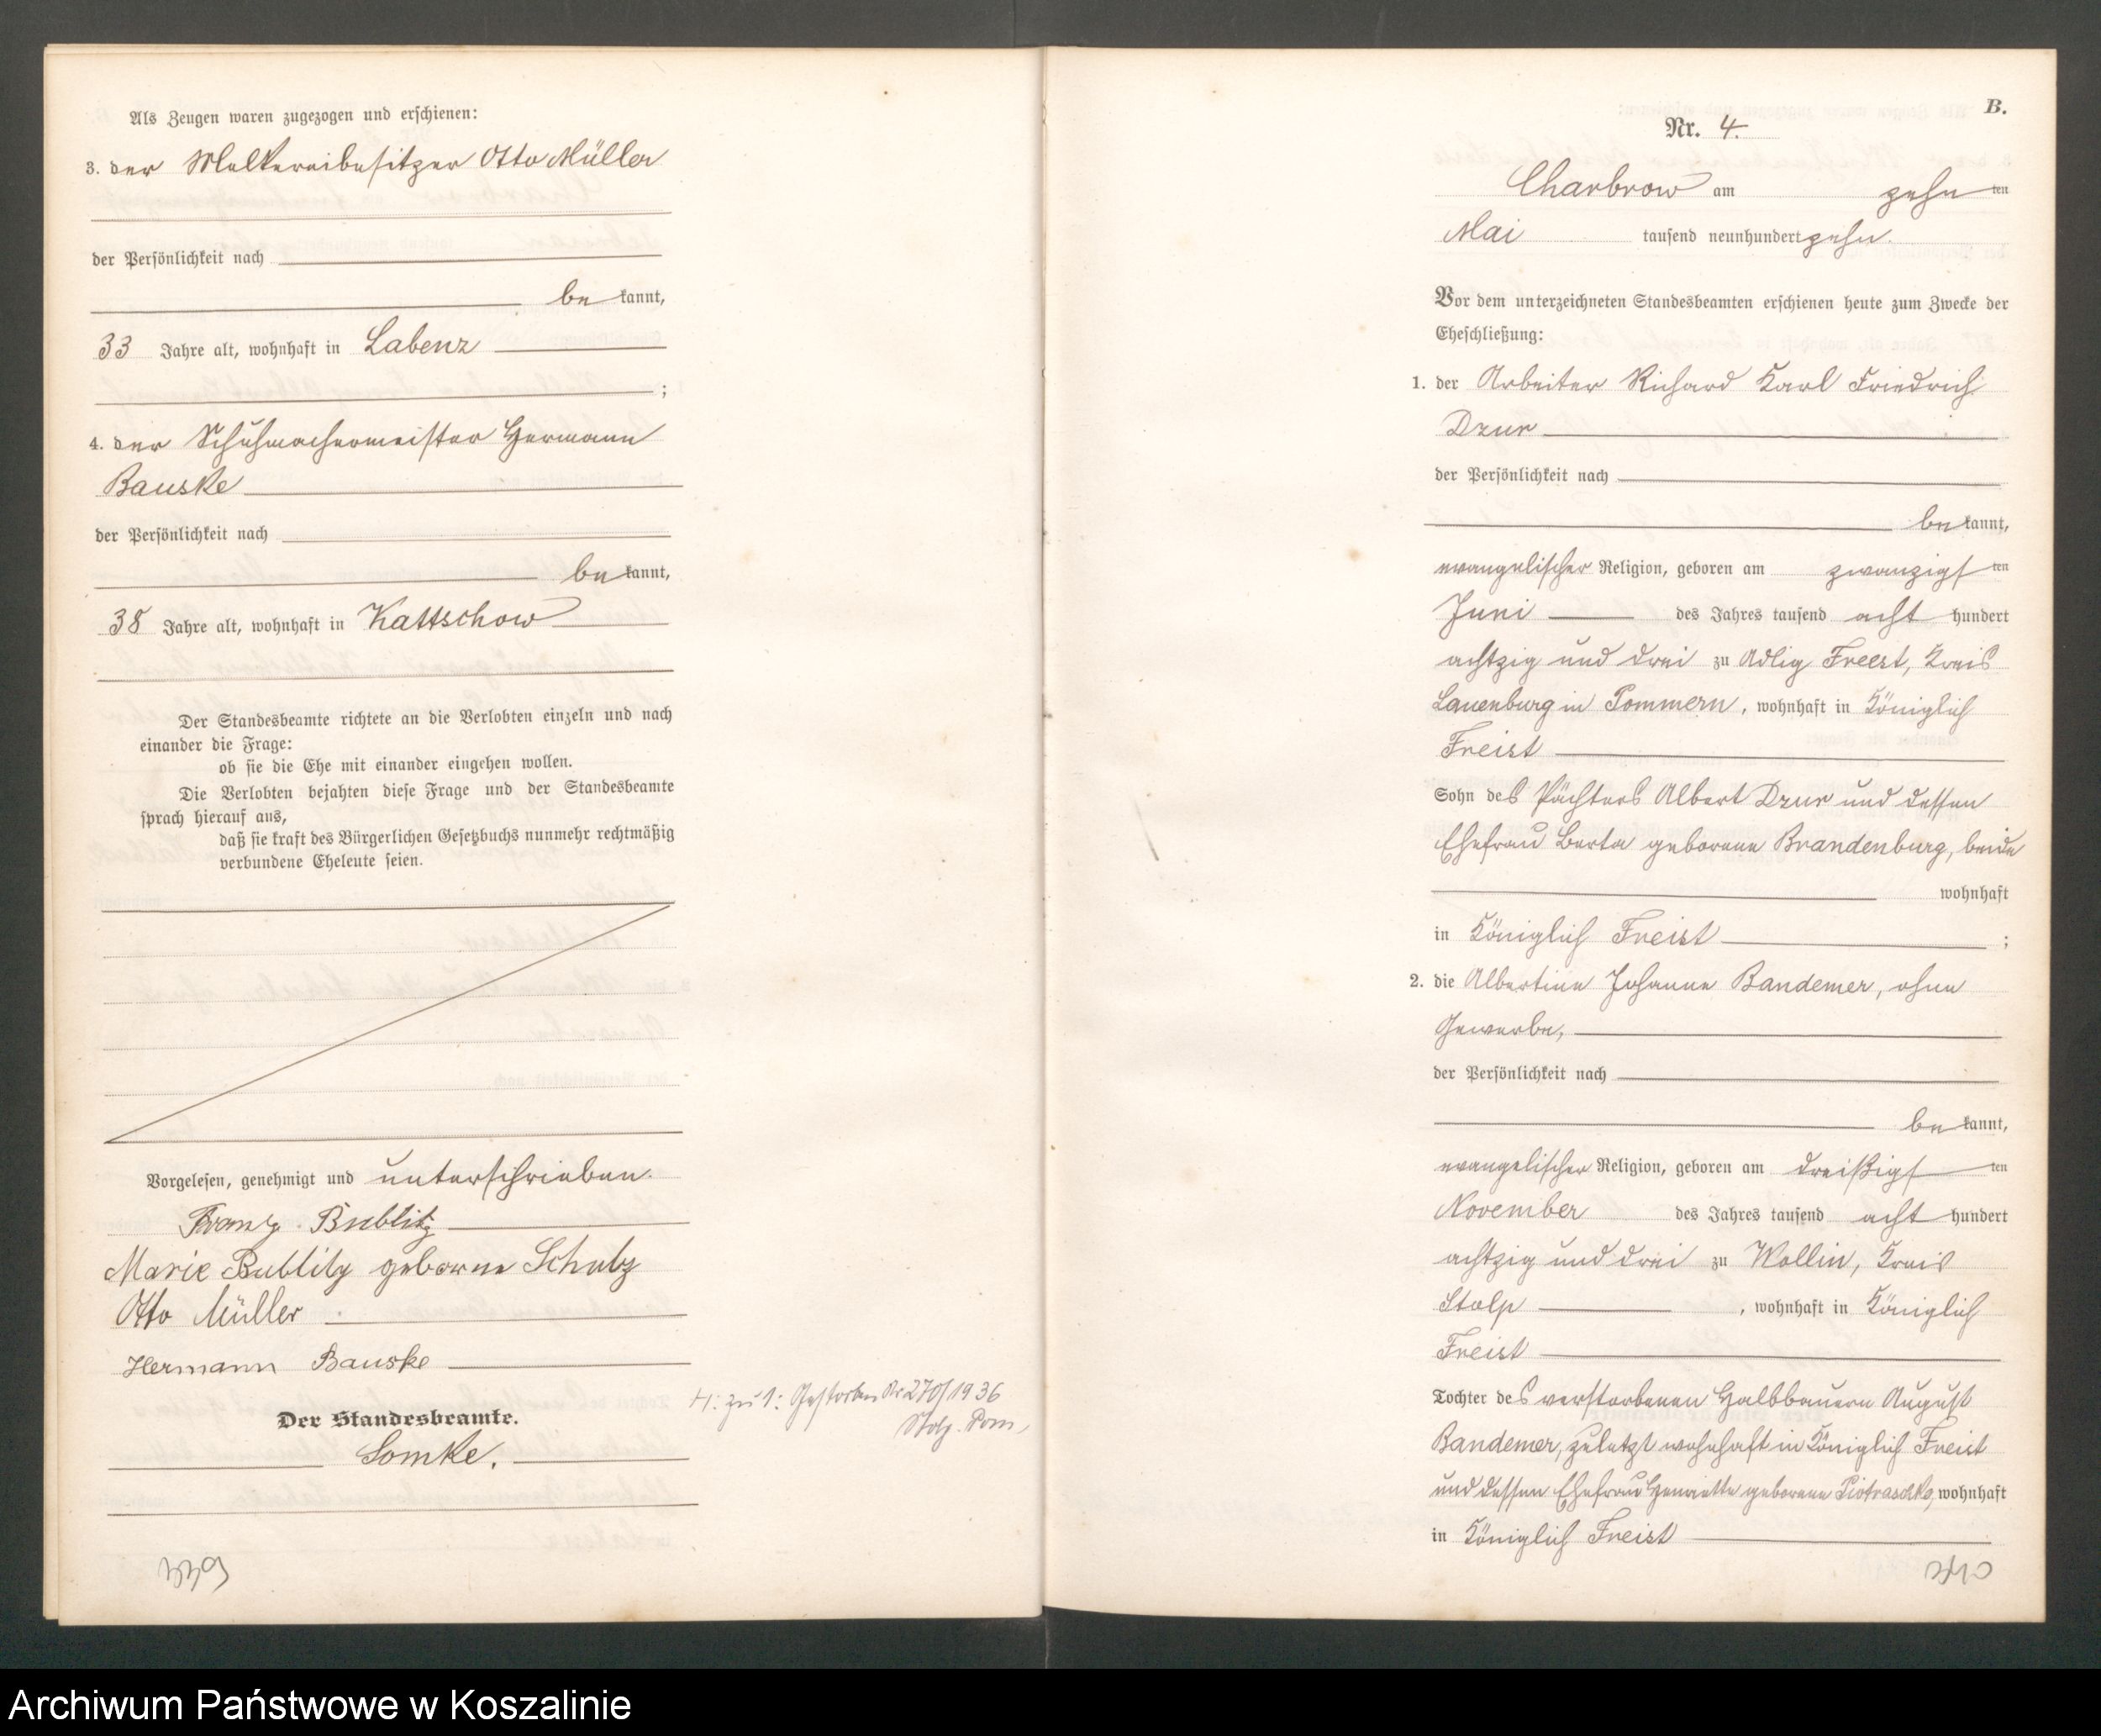 Als Zeugen waren zugezogen und erschienen:
3. der Molkereibesitzer Otto Müller
der Persönlichkeit nach
be kannt,
33 Jahre alt, wohnhaft in Labenz
;
4. der Schuhmachermeister Hermann
Bauske
der Persönlichkeit nach
be kannt,
38 Jahre alt, wohnhaft in Kattschow
Der Standesbeamte richtete an die Verlobten einzeln und nach
einander die Frage:
ob sie die Ehe mit einander eingehen wollen.
Die Verlobten bejahten diese Frage und der Standesbeamte
sprach hierauf aus,
daß sie kraft des Bürgerlichen Gesetzbuchs nunmehr rechtmäßig
verbundene Eheleute seien.
Vorgelesen, genehmigt und unterschrieben.
Franz Bublitz
Marie Bublitz geborne Schulz
Otto Müller
Hermann Bauske
Der Standesbeamte.
Lomke.
H: zu 1: Gestorben Nr 270/1936
Stolp. Pom,
339
B.
Nr. 4.
Charbrow am zehn ten
Mai tausend neunhundert zehn.
Vor dem unterzeichneten Standesbeamten erschienen heute zum Zwecke der
Eheschließung:
1. der Arbeiter Richard Karl Friedrich
Dzur
der Persönlichkeit nach
be kannt,
evangelischer Religion, geboren am zwanzigs ten
Juni des Jahres tausend acht hundert
achtzig und drei zu Adlig Freest, Kreis
Lauenburg in Pommern, wohnhaft in Königlich
Freist
Sohn des Pächters Albert Dzur und dessen
Ehefrau Berta geborene Brandenburg, beide
wohnhaft
in Königlich Freist ;
2. die Albertine Johanne Bandemer, ohne
Gewerbe,
der Persönlichkeit nach
be kannt,
evangelischer Religion, geboren am dreißigs ten
November des Jahres tausend acht hundert
achtzig und drei zu Wollin, Kreis
Stolp , wohnhaft in Königlich
Freist
Tochter des verstorbenen Halbbauern August
Bandemer, zuletzt wohnhaft in Königlich Freist
und dessen Ehefrau Henriette geborene Piotraschke, wohnhaft
in Königlich Freist
340
Archiwum Państwowe w Koszalinie